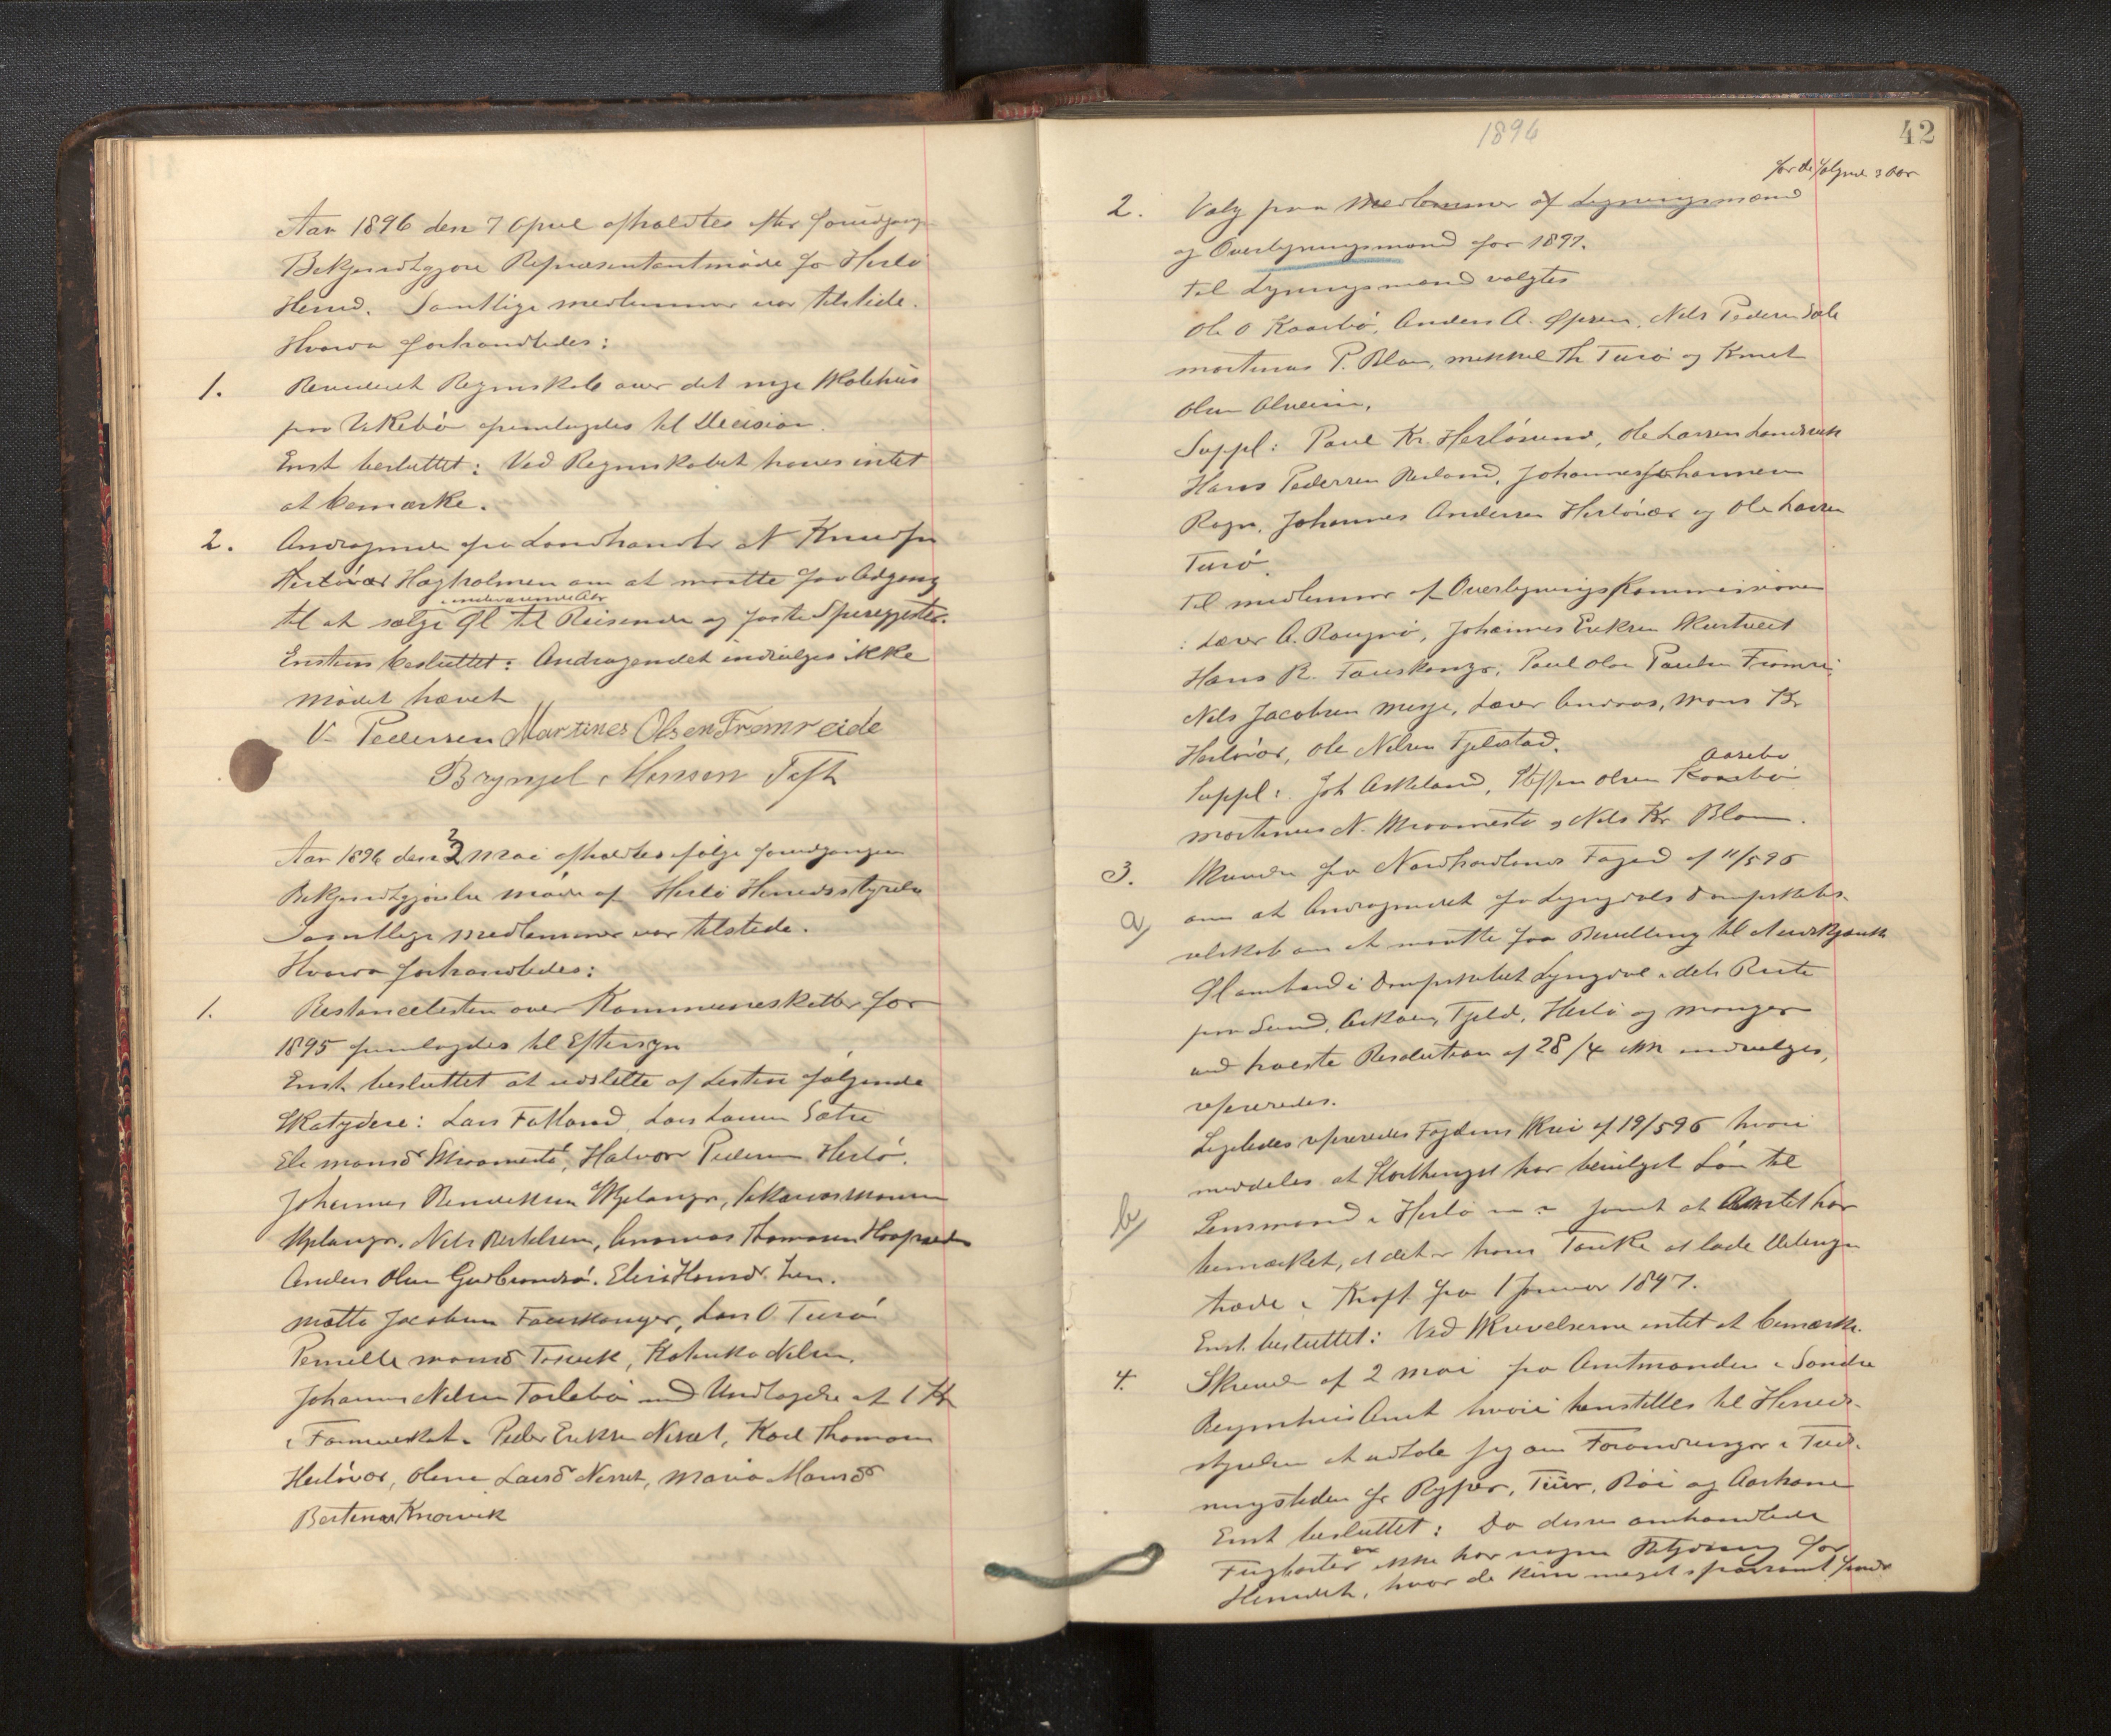 Aar 1896 den 7 April afholdtes efter forudgaaen
Bekjendtgjøre Repræsentantmøde for Herlø
Herred. Samtlige medlemmer var tilstede.
Hvorva forhandledes:
1. Revideret Regnskab over det nye Skolehus
paa Vikebø fremlagdes til Decision.
Enst besluttet: Ved Regnskabet haves intet
at bemærke.
2. Andragende fra Landhandler N Knudsen
Herløvær Hagholmen om at maatte faa Adgang
indeværende Aar
til at sælge Øl til Reisende og faste Spisegjester.
Enstem besluttet: Andragendet indvilges ikke
Mødet hævet
V. Pedersen Martines Olsen Fromreide
Brynjel Monsen Toft
Aar 1896 den 2 Mai afholdtes ifølge forudgangen
Bekjendtgjørelse møde af Herlø Herredsstyrelse
Samtlige medlemmer var tilstede.
Hvorva forhandledes:
1. Restancelisten over Kommuneskatter for
1895 fremlagdes til Eftersyn
Enst. besluttet at udslette af Listen følgende
Skatydere: Lars Fotland, Lars Larsen Sætre
Eli Monsd Misomestø, Halvor Pedersen Herlø.
Johannes Bendiktsen Mjelanger,
Nils Bertelsen, Andreas Thomasen
Anders Olsen Gudbrandsø. Elisi Hansd.
Matte Jacobsen Fauskanger, Lars O Turø
Pernille Monsd Toska, Katrika Nilsen.
Johannes Nilsen Torlebø med Undtagelse af 1 Kr
i Formueskat. Peder Eriksen Nesset, Karl Thomasen
Herløvær, Olene Larsd Nesset, Maria Monsd
Bertinus Knarvik
1896
42
for de følgende 3 Aar
2. Valg paa Medlemmer af Ligningsmænd
og Overligningsmænd for 1897.
Til Ligningsmænd valgtes
Ole O Kaarbø, Anders A. Øpsen, Nils Pedersen Sæle
Martinus P. Blom, Mikkel Th Turø og Knut
Olsen Alveim.
Suppl: Paul Kr Herløsund, Ole Larsen Landsvik
Hans Pedersen Husland, Johannes Johannesen
Rogn, Johannes Andersen Herløvær og Ole Larsen
Turø.
Til medlemmer af Overligningskommissionen
: Lærer A. Rongnø, Johannes Eriksen Skurtveit
Hans R. Fauskanger, Paul Olai Paulsen Fromrei.
Nils Jacobsen Meye, Lærer Andraas, Mons Kr
Herløvær, Ole Nilsen Fjeldstad.
Aasebø
Suppl: Joh Askeland, Steffen Olsen Kaarbø
Martinus N. Misomestø og Nils Kr Blom.
3. Skrivelse fra Nordhordlens Foged af 11/5 96
a) om at Andragendet fra Lyngdals Dampskibs-
selskab om at maatte faa Bevilling til Udskjænk
Øl ombord i Dampskibet Lyngdal i dets Rute
paa Sund, Askøen, Fjeld, Herlø og Manger
ved høieste Resolution af 28/4 ikke indvilges,
refereredes.
Ligeledes refereredes Fogdens Skriv af 19/5 96 hvori
meddeles at Storthinget har bevilget Løn til
b) Lensmand i Herlø samt at Amtet har
bemærket, at det er hans Tanke at lade Delingen
træde i Kraft fra 1 Januar 1897.
Enst. besluttet: Ved Skrivelserne intet at bemærke.
4. Skrivelse af 2 Mai fra Amtmanden i Søndre
Bergenhus Amt hvori henstilles til Herreds-
styrelsen at udtale sig om Forandringer i Fred-
ningstiden for Ryper, Tiur, Røi og Aarhane
Enst besluttet: Da disse omhandlede
Fuglearter ikke har nogen Betydning for
Herredet, hvor de kun meget sparsomt findes